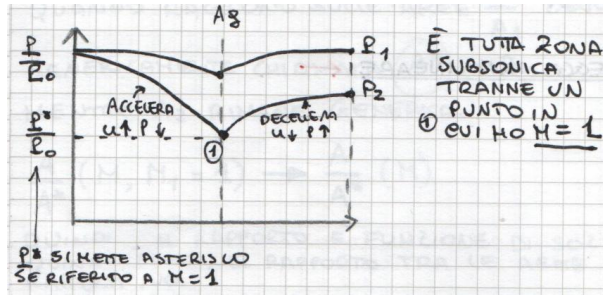 Ag
P/P₀
P₁
P₂
P*/P₀
ACCELERA
u↑ P↓
DECELERA
u↓ P↑
①
È TUTTA ZONA
SUBSONICA
TRANNE UN
PUNTO IN
① CUI HO M=1
P* SI METTE ASTERISCO
SE RIFERITO A M=1